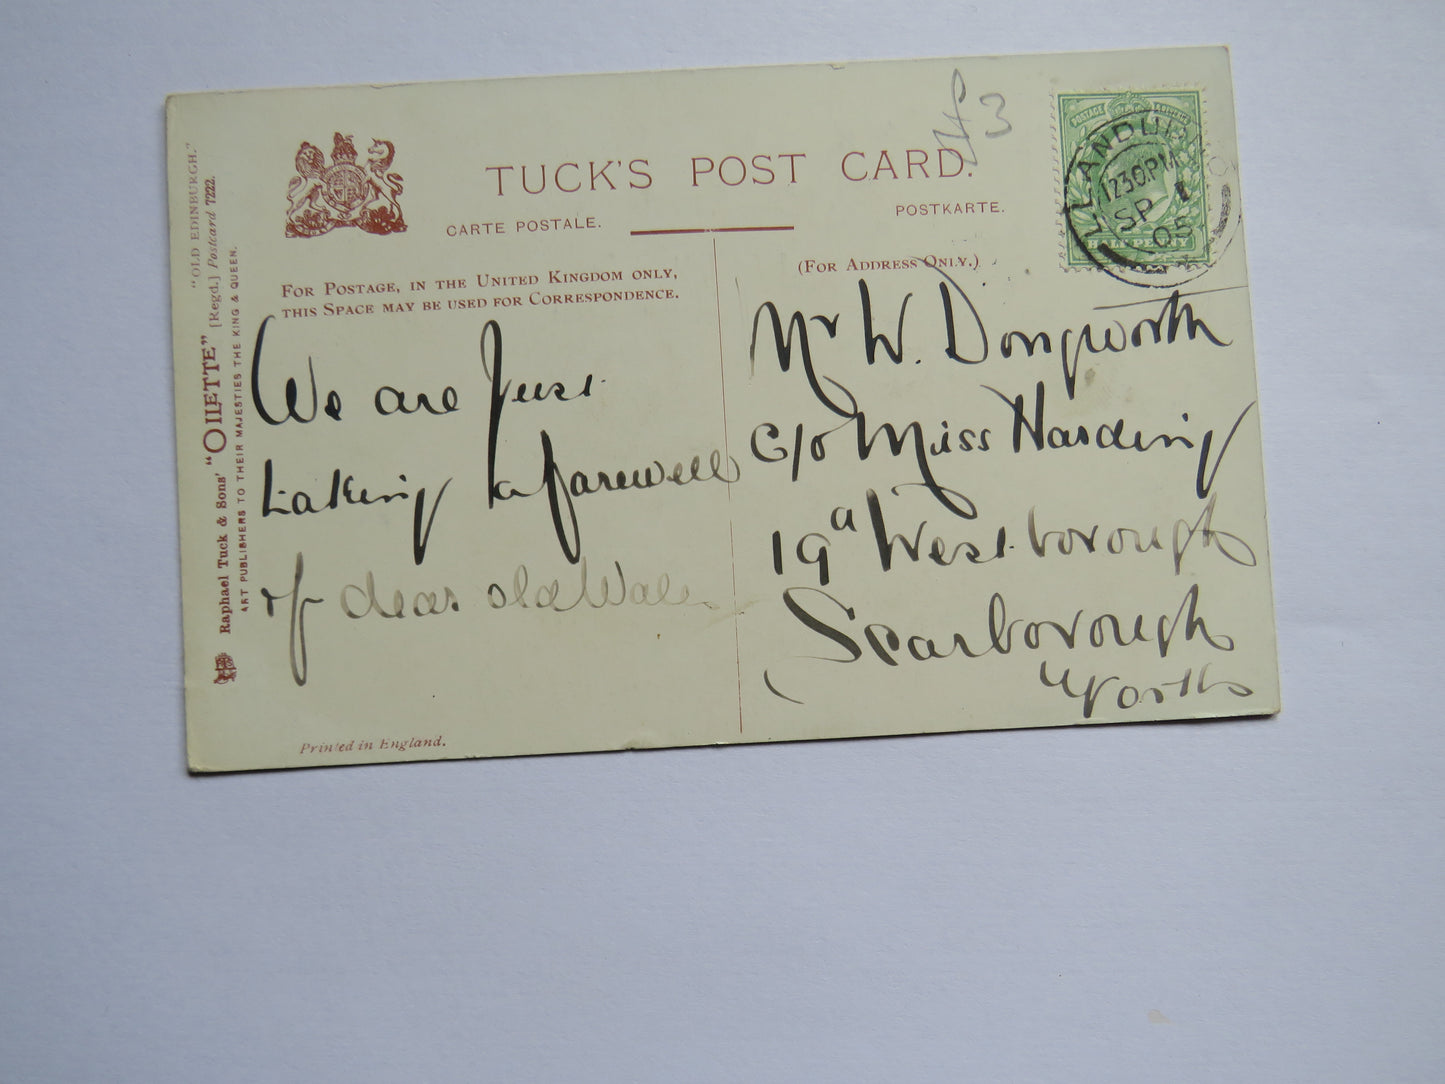 TUCK'S POST CARD.
CARTE POSTALE.
POSTKARTE.
FOR POSTAGE, IN THE UNITED KINGDOM ONLY,
THIS SPACE MAY BE USED FOR CORRESPONDENCE.
(FOR ADDRESS ONLY.)
3
POSTAGE
HALFPENNY
LLANDUDNO
1230PM
SP 1
05
We are just
taking a farewell
of dear old Wales
Mr W. Dongworth
c/o Miss Harding
19a Westborough
Scarborough
Yorks
"OLD EDINBURGH."
Raphael Tuck & Sons' "OILETTE" [Regd.] Postcard 7222.
ART PUBLISHERS TO THEIR MAJESTIES THE KING & QUEEN.
Printed in England.